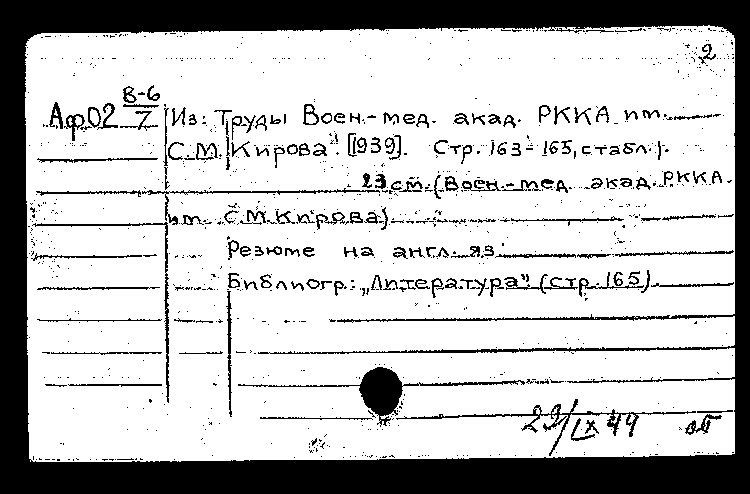 2
Аф02 В-6/7
Из: Труды Воен.-мед. акад. РККА им.
С.М. Кирова". [1939]. Стр. 163-165, с табл.).
23 cm. (Воен.-мед. акад. РККА
им. С.М. Кирова)
Резюме на англ. яз.
Библиогр.: „Литература" (стр. 165).
29/IX 49